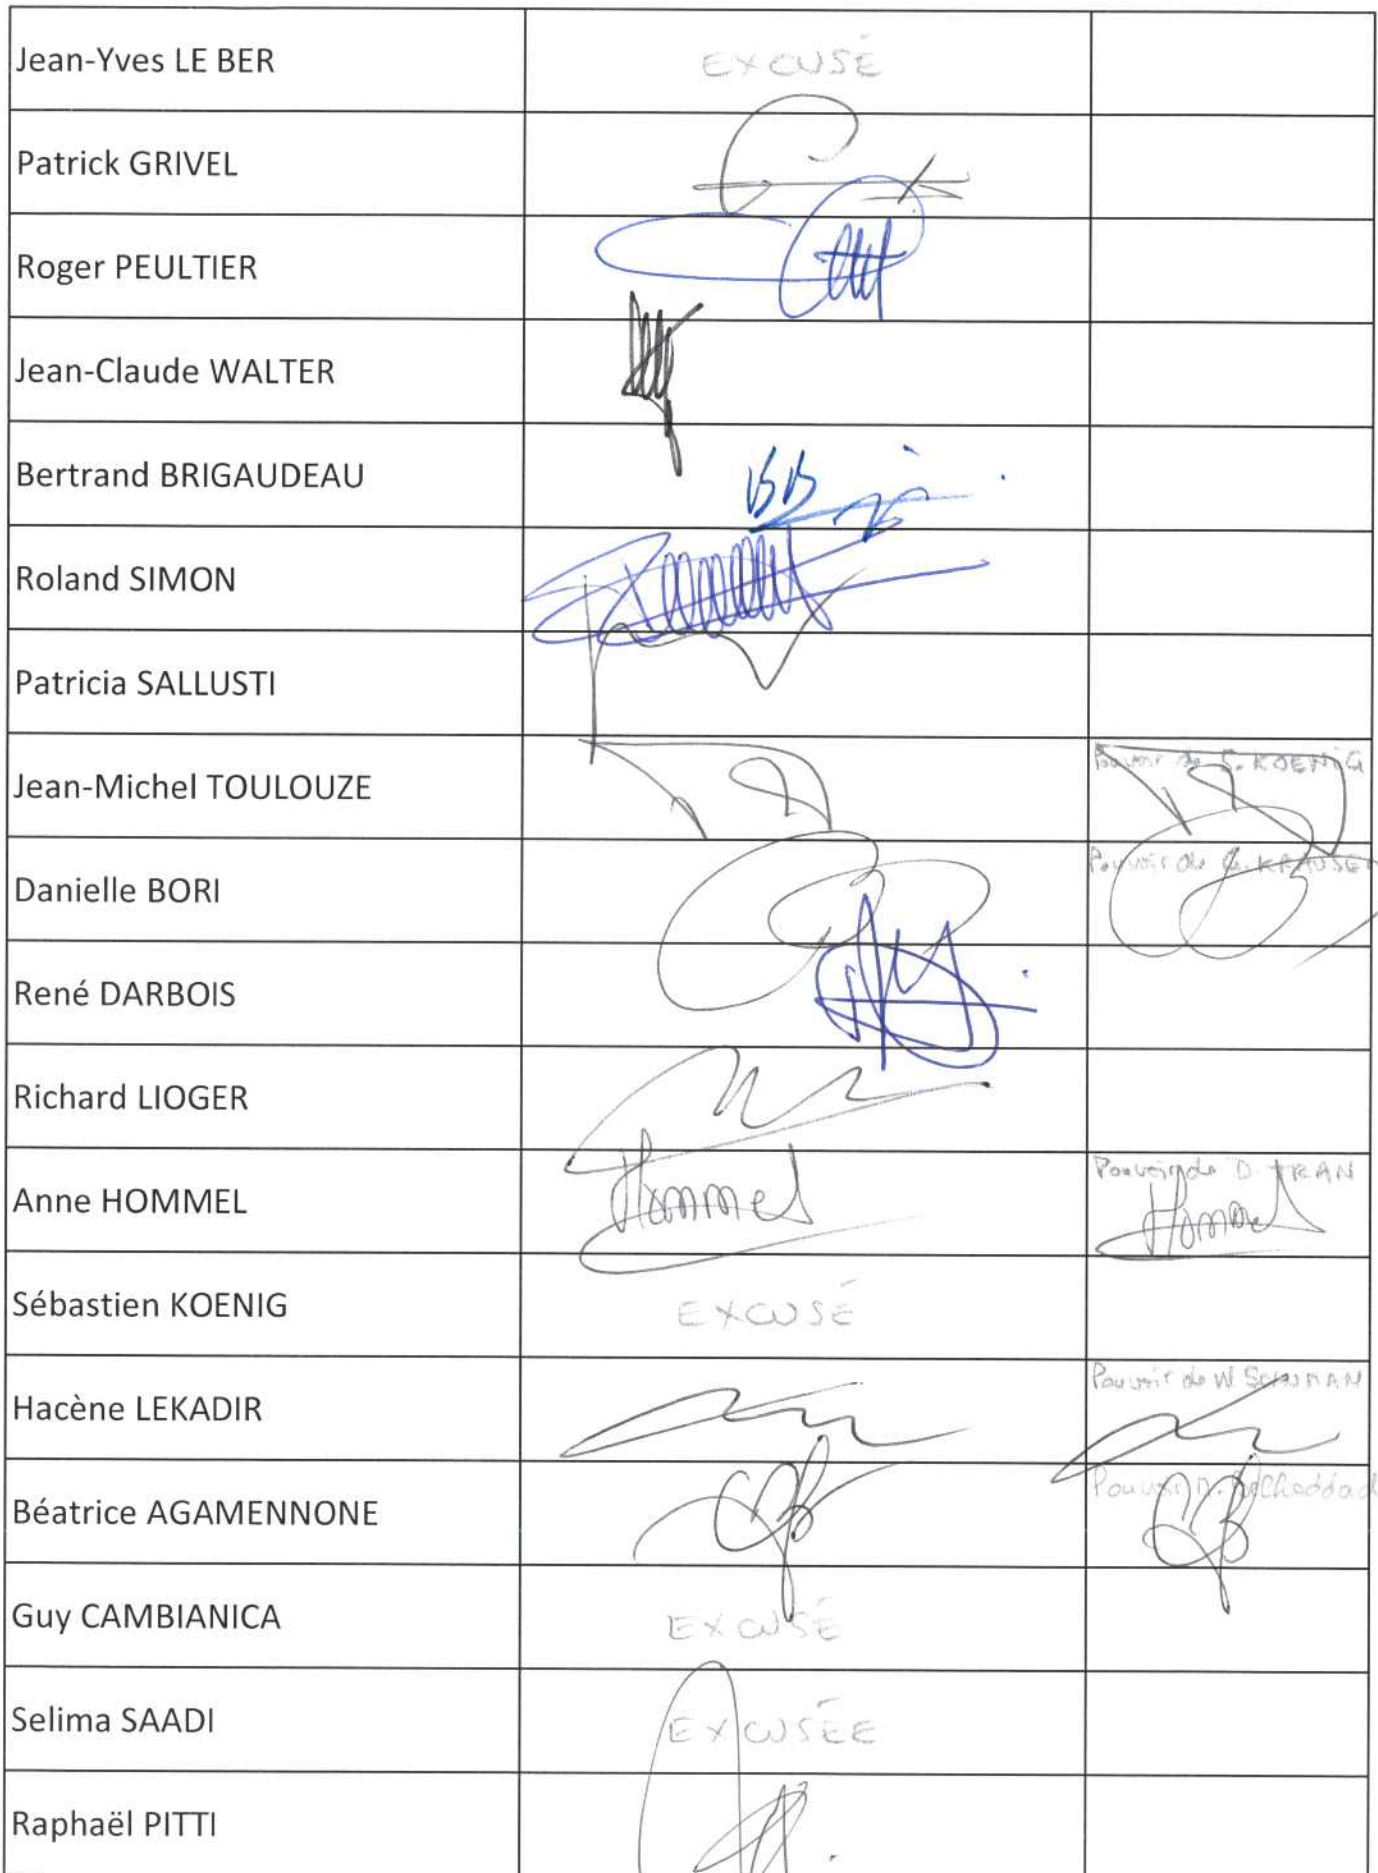 Jean-Yves LE BER EXCUSÉ
Patrick GRIVEL
Roger PEULTIER
Jean-Claude WALTER
Bertrand BRIGAUDEAU BB
Roland SIMON
Patricia SALLUSTI
Jean-Michel TOULOUZE Pouvoir de S. KOENIG
Danielle BORI Pouvoir de KRAUSE
René DARBOIS
Richard LIOGER
Anne HOMMEL Hommel Pouvoir de D TRAN Hommel
Sébastien KOENIG EXCUSÉ
Hacène LEKADIR Pouvoir de W SCHUMAN
Béatrice AGAMENNONE Pouvoir
Guy CAMBIANICA EXCUSÉ
Selima SAADI EXCUSÉE
Raphaël PITTI